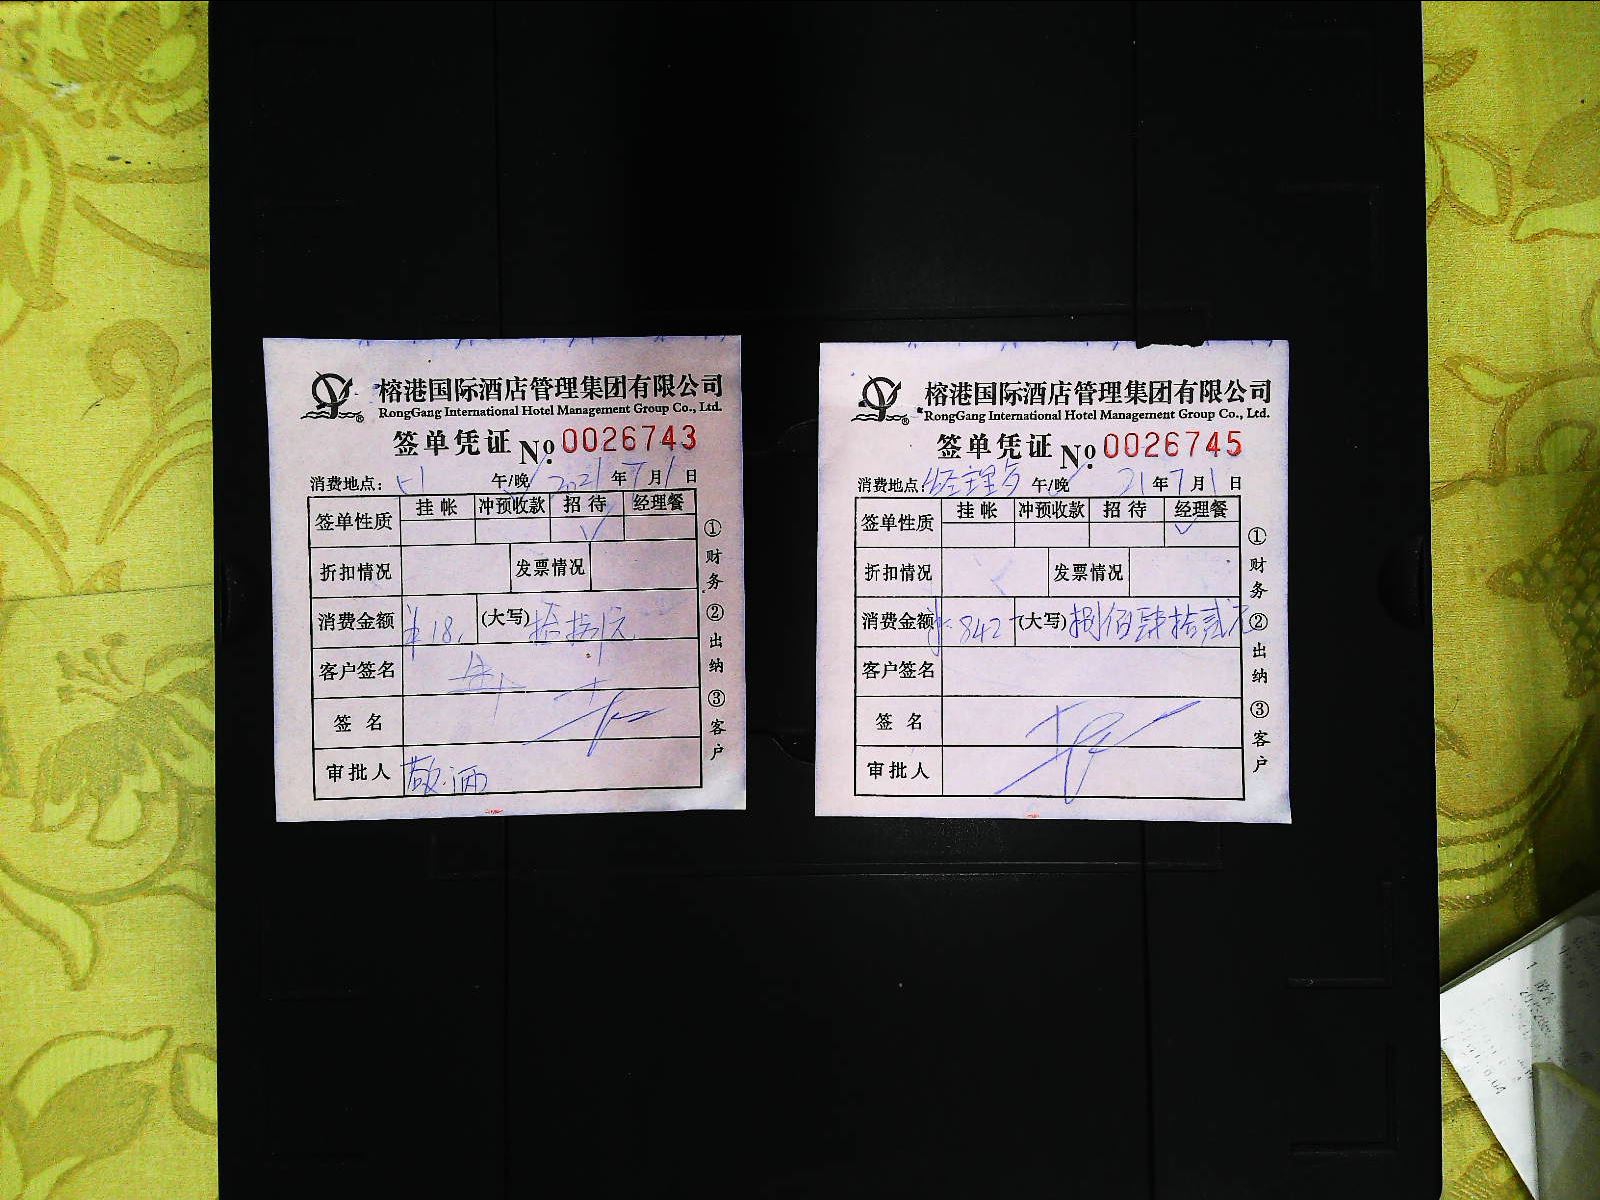 榕港国际酒店管理集团有限公司
RongGang International Hotel Management Group Co., Ltd.
签单凭证 No. 0026743
消费地点: 51 午/晚 2021 年 7 月 1 日
签单性质 挂帐 冲预收款 招待 经理餐
✓
折扣情况 发票情况
消费金额 ¥18. (大写) 拾捌元
客户签名
签名
审批人 敬酒
①财务 ②出纳 ③客户
榕港国际酒店管理集团有限公司
RongGang International Hotel Management Group Co., Ltd.
签单凭证 No. 0026745
消费地点: 经理 午/晚 21 年 7 月 1 日
签单性质 挂帐 冲预收款 招待 经理餐
✓
折扣情况 发票情况
消费金额 ¥842 (大写) 捌佰肆拾贰元
客户签名
签名
审批人
①财务 ②出纳 ③客户